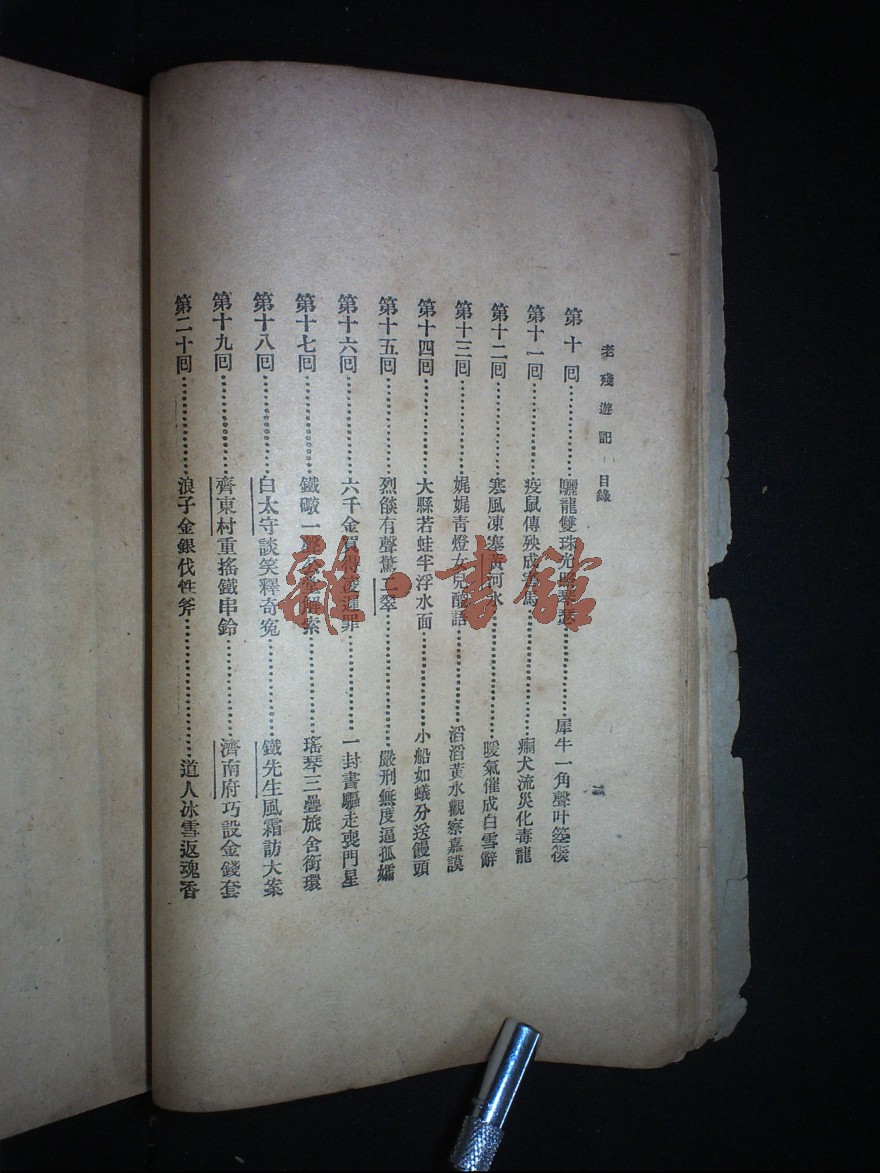 老殘遊記 目錄
第十回 驪龍雙珠光照琴瑟 犀牛一角聲叶箜篌
第十一回 疫鼠傳殃成害馬 瘈犬流災化毒龍
第十二回 寒風凍塞黃河水 暖氣催成白雪辭
第十三回 娓娓青燈女兒酸語 滔滔黃水觀察嘉謨
第十四回 大縣若蛙半浮水面 小船如蟻分送饅頭
第十五回 烈燄有聲驚二翠 嚴刑無度逼孤孀
第十六回 六千金買得凌遲罪 一封書驅走喪門星
第十七回 鐵礮一聲公堂解索 瑤琴三疊旅舍銜環
第十八回 白太守談笑釋奇冤 鐵先生風霜訪大案
第十九回 齊東村重搖鐵串鈴 濟南府巧設金錢套
第二十回 浪子金銀伐性斧 道人冰雪返魂香
雜·書館